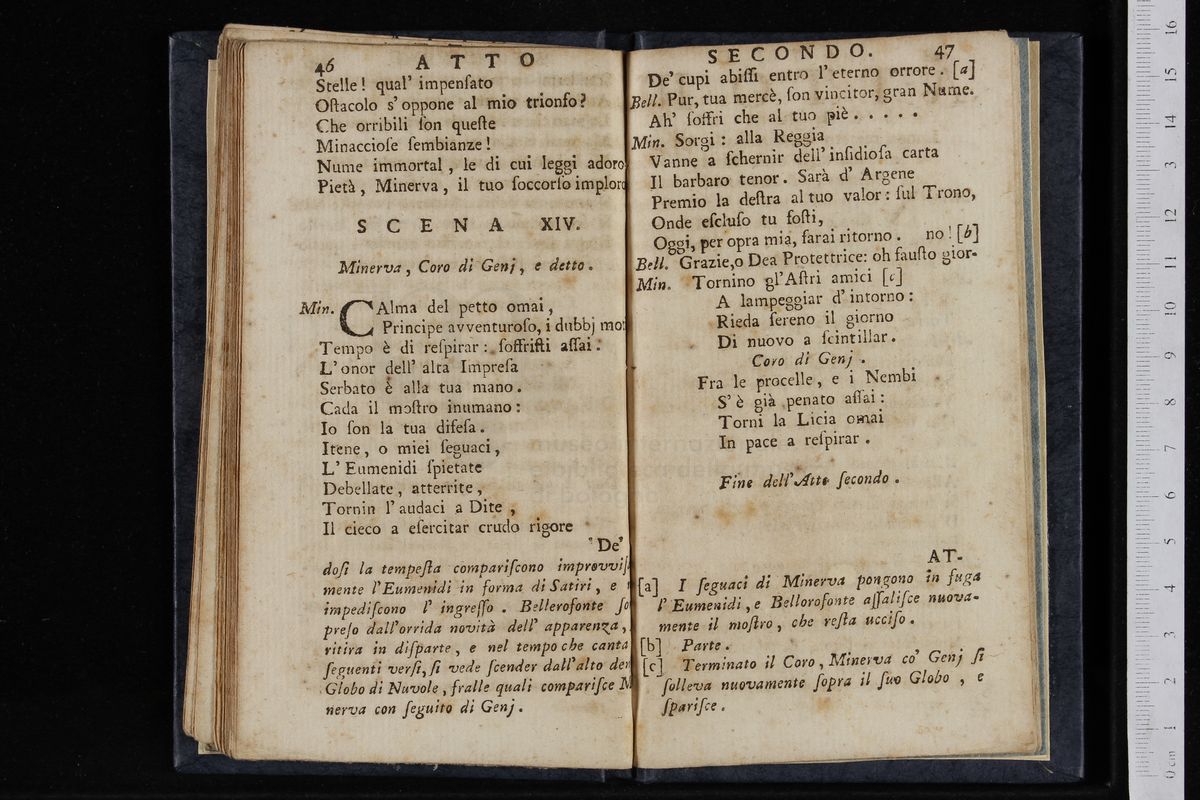 46 ATTO
Stelle! qual' impenſato
Oſtacolo s' oppone al mio trionfo?
Che orribili ſon queſte
Minaccioſe ſembianze!
Nume immortal, le di cui leggi adoro
Pietà, Minerva, il tuo ſoccorſo implor
SCENA XIV.
Minerva, Coro di Genj, e detto.
Min. CAlma del petto omai,
Principe avventuroſo, i dubbj mot
Tempo è di reſpirar: ſoffriſti aſſai.
L' onor dell' alta Impreſa
Serbato è alla tua mano.
Cada il moſtro inumano:
Io ſon la tua difeſa.
Itene, o miei ſeguaci,
L' Eumenidi ſpietate
Debellate, atterrite,
Tornin l' audaci a Dite,
Il cieco a eſercitar crudo rigore
De'
doſi la tempeſta compariſcono improvviſ
mente l' Eumenidi in forma di Satiri, e
impediſcono l' ingreſſo. Bellerofonte ſo
preſo dall' orrida novità dell' apparenza,
ritira in diſparte, e nel tempo che canta
ſeguenti verſi, ſi vede ſcender dall' alto den
Globo di Nuvole, fralle quali compariſce M
nerva con ſeguito di Genj.
SECONDO. 47
De' cupi abiſſi entro l' eterno orrore. [a]
Bell. Pur, tua mercè, ſon vincitor, gran Nume.
Ah' ſoffri che al tuo piè.....
Min. Sorgi: alla Reggia
Vanne a ſchernir dell' inſidioſa carta
Il barbaro tenor. Sarà d' Argene
Premio la deſtra al tuo valor: ſul Trono,
Onde eſcluſo tu foſti,
Oggi, per opra mia, farai ritorno. no! [b]
Bell. Grazie, o Dea Protettrice: oh fauſto gior-
Min. Tornino gl' Aſtri amici [c]
A lampeggiar d' intorno:
Rieda ſereno il giorno
Di nuovo a ſcintillar.
Coro di Genj.
Fra le procelle, e i Nembi
S' è già penato aſſai:
Torni la Licia omai
In pace a reſpirar.
Fine dell' Atto ſecondo.
AT-
[a] I ſeguaci di Minerva pongono in fuga
l' Eumenidi, e Bellorofonte aſſaliſce nuova-
mente il moſtro, che reſta ucciſo.
[b] Parte.
[c] Terminato il Coro, Minerva co' Genj ſi
ſolleva nuovamente ſopra il ſuo Globo, e
ſpariſce.
0 cm 1 2 3 4 5 6 7 8 9 10 11 12 13 14 15 16